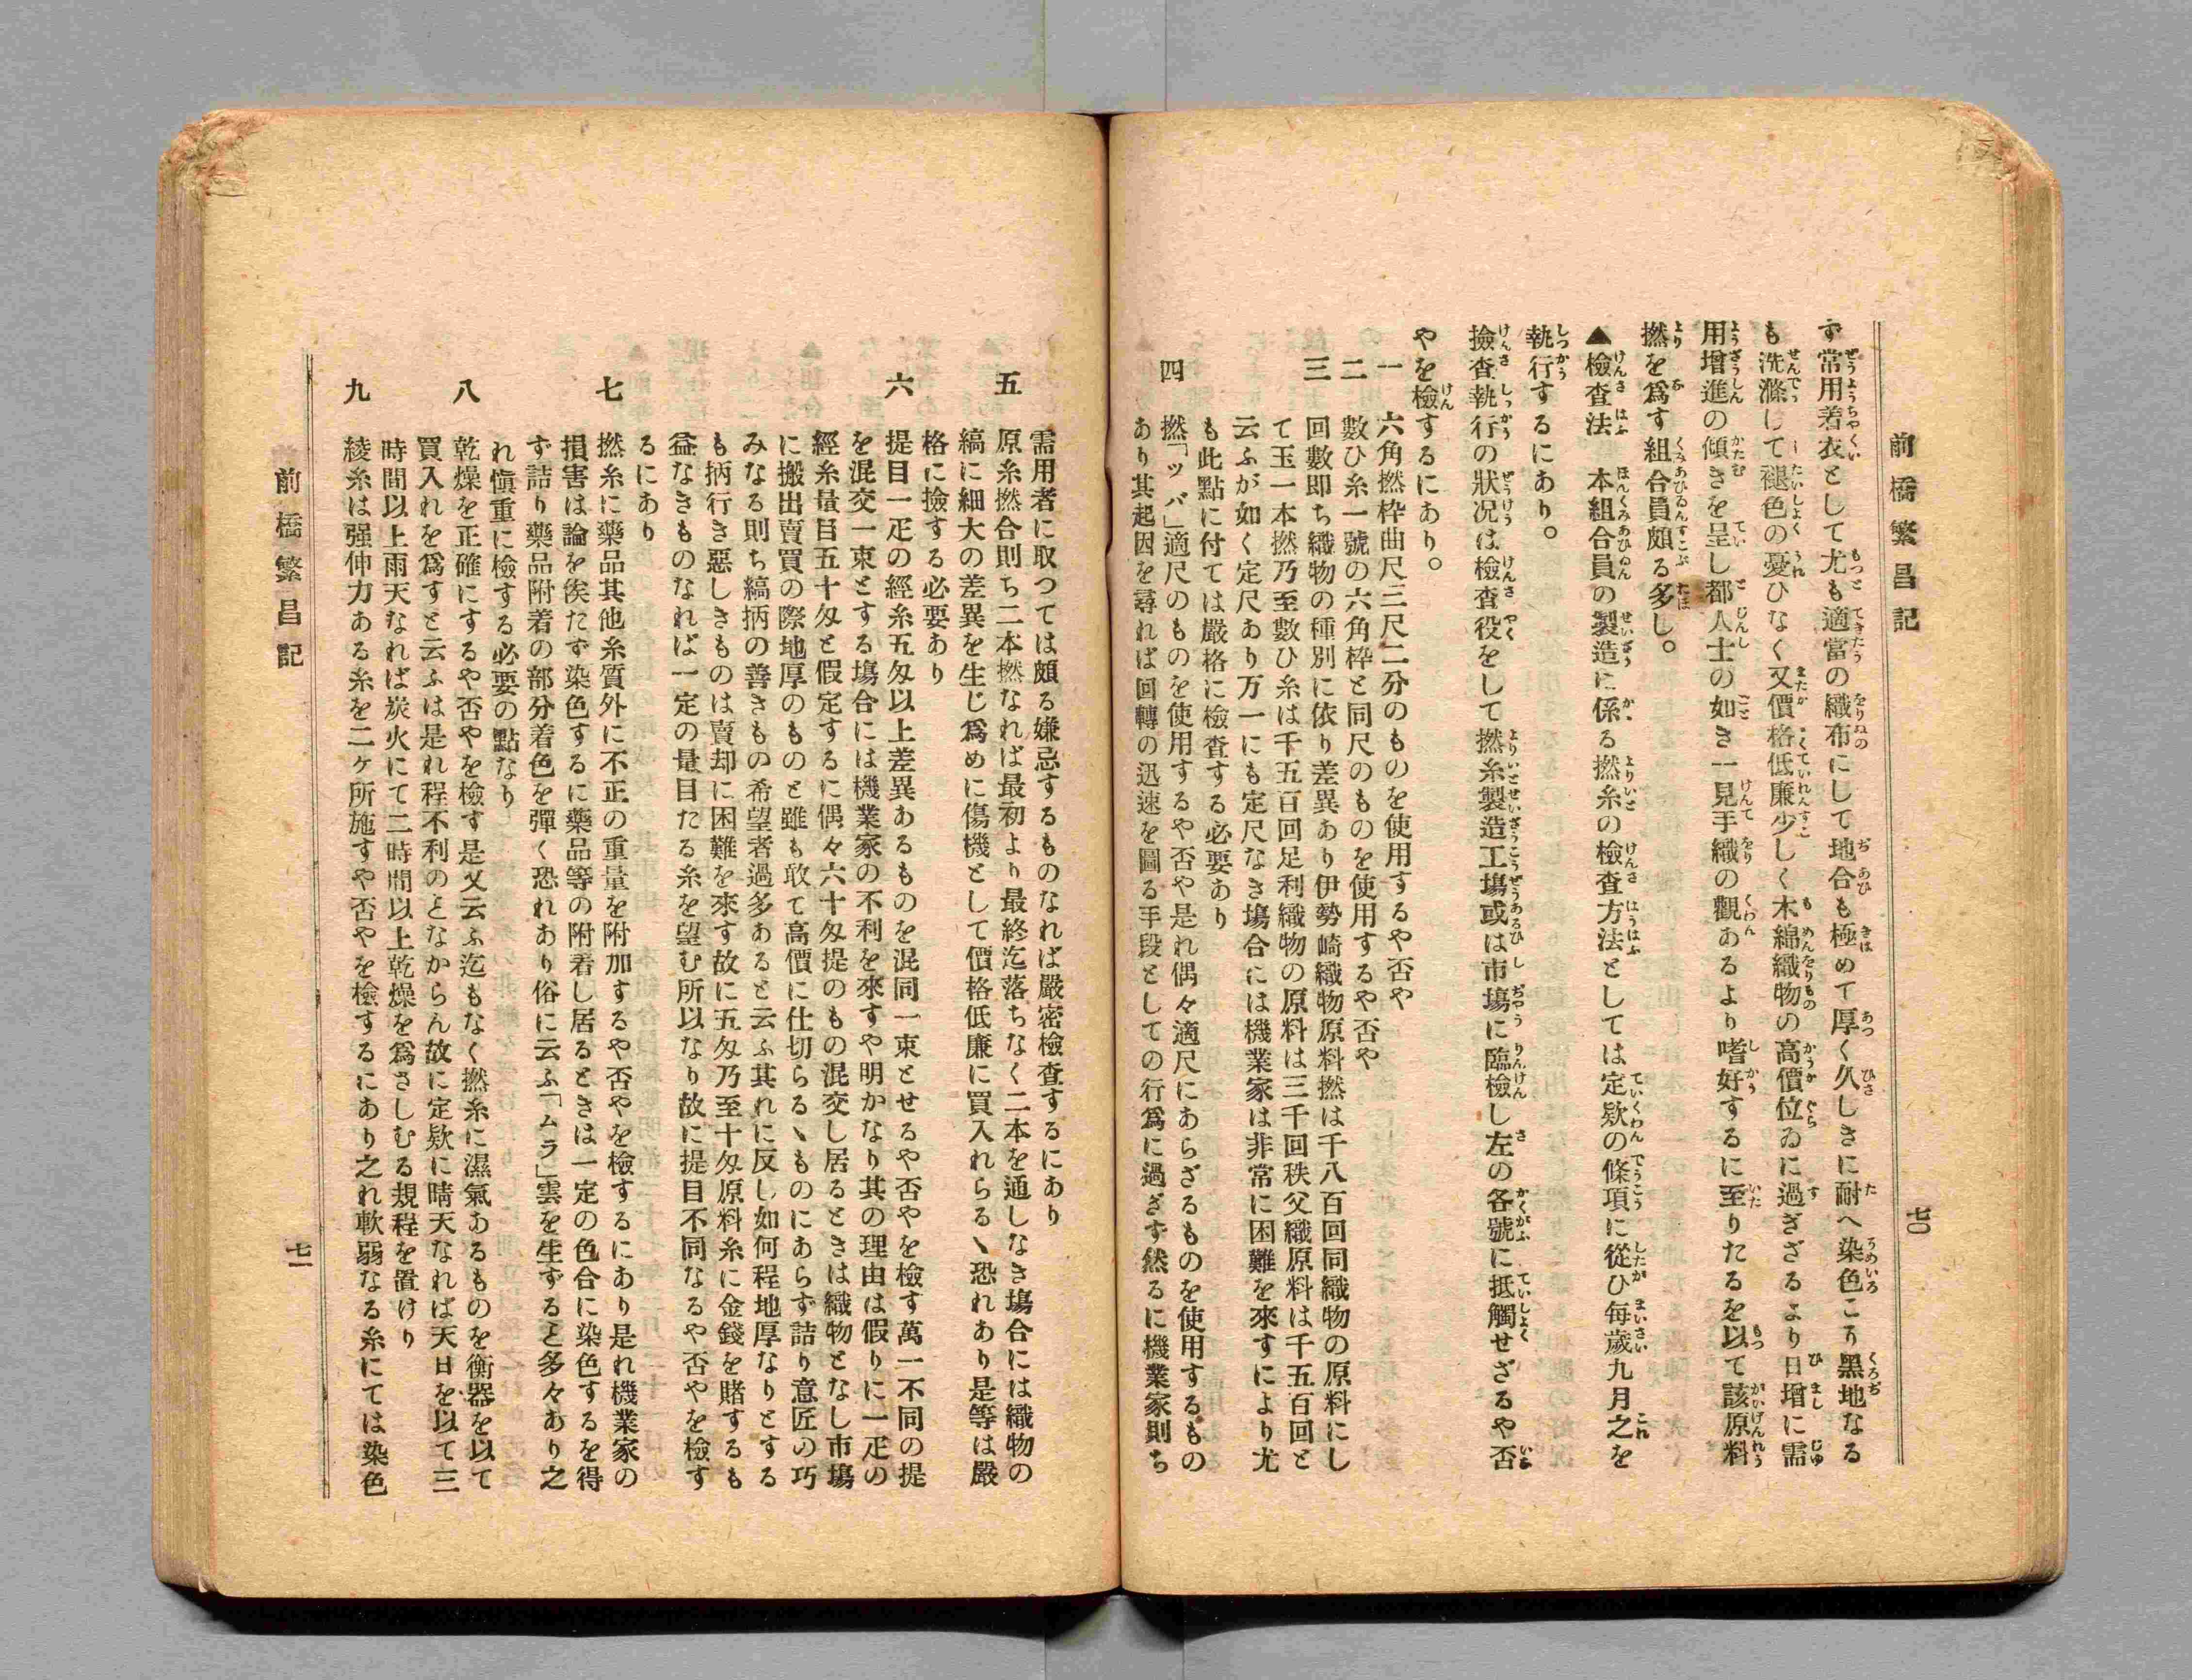 前橋繁昌記
七〇
ず常用着衣として尤も適當の織布にして地合も極めて厚く久しきに耐へ染色こそ黑地なる
も洗滌して褪色の憂ひなく又價格低廉少しく木綿織物の高價位ゐに過ぎざるより日增に需
用增進の傾きを呈し都人士の如き一見手織の觀あるより嗜好するに至りたるを以て該原料
撚を爲す組合員頗る多し。
▲檢査法　本組合員の製造に係る撚糸の檢査方法としては定欵の條項に從ひ每歲九月之を
執行するにあり。
撿査執行の狀况は檢査役をして撚糸製造工場或は市場に臨檢し左の各號に抵觸せざるや否
やを檢するにあり。
一　六角撚枠曲尺三尺二分のものを使用するや否や
二　數ひ糸一號の六角枠と同尺のものを使用するや否や
三　回數即ち織物の種別に依り差異あり伊勢崎織物原料撚は千八百回同織物の原料にし
て玉一本撚乃至數ひ糸は千五百回足利織物の原料は三千回秩父織原料は千五百回と
云ふが如く定尺あり万一にも定尺なき塲合には機業家は非常に困難を來すにより尤
も此點に付ては嚴格に檢査する必要あり
四　撚「ッパ」適尺のものを使用するや否や是れ偶々適尺にあらざるものを使用するもの
あり其起因を尋れば回轉の迅速を圖る手段としての行爲に過ぎず然るに機業家則ち
需用者に取つては頗る嫌忌するものなれば嚴密檢查するにあり
五　原糸撚合則ち二本撚なれば最初より最終迄落ちなく二本を通しなき塲合には織物の
縞に細大の差異を生じ爲めに傷機として價格低廉に買入れらるヽ恐れあり是等は嚴
格に撿する必要あり
六　提目一疋の經糸五匁以上差異あるものを混同一束とせるや否やを檢す萬一不同の提
を混交一束とする塲合には機業家の不利を來すや明かなり其の理由は假りに一疋の
經糸量目五十匁と假定するに偶々六十匁提のもの混交し居るときは織物となし市塲
に搬出賣買の際地厚のものと雖も敢て高價に仕切らるヽものにあらず詰り意匠の巧
みなる則ち縞柄の善きもの希望者過多あると云ふ其れに反し如何程地厚なりとする
も柄行き惡しきものは賣却に困難を來す故に五匁乃至十匁原料糸に金錢を賭するも
益なきものなれば一定の量目たる糸を望む所以なり故に提目不同なるや否やを檢す
るにあり
七　撚糸に藥品其他糸質外に不正の重量を附加するや否やを檢するにあり是れ機業家の
損害は論を俟たず染色するに藥品等の附着し居るときは一定の色合に染色するを得
ず詰り藥品附着の部分着色を彈く恐れあり俗に云ふ「ムラ」雲を生ずると多々あり之
れ愼重に檢する必要の點なり
八　乾燥を正確にするや否やを檢す是又云ふ迄もなく撚糸に濕氣あるものを衡器を以て
買入れを爲すと云ふは是れ程不利のとなからん故に定欵に晴天なれば天日を以て三
時間以上雨天なれば炭火にて二時間以上乾燥を爲さしむる規程を置けり
九　綾糸は强伸力ある糸を二ヶ所施すや否やを檢するにあり之れ軟弱なる糸にては染色
前橋繁昌記
七一